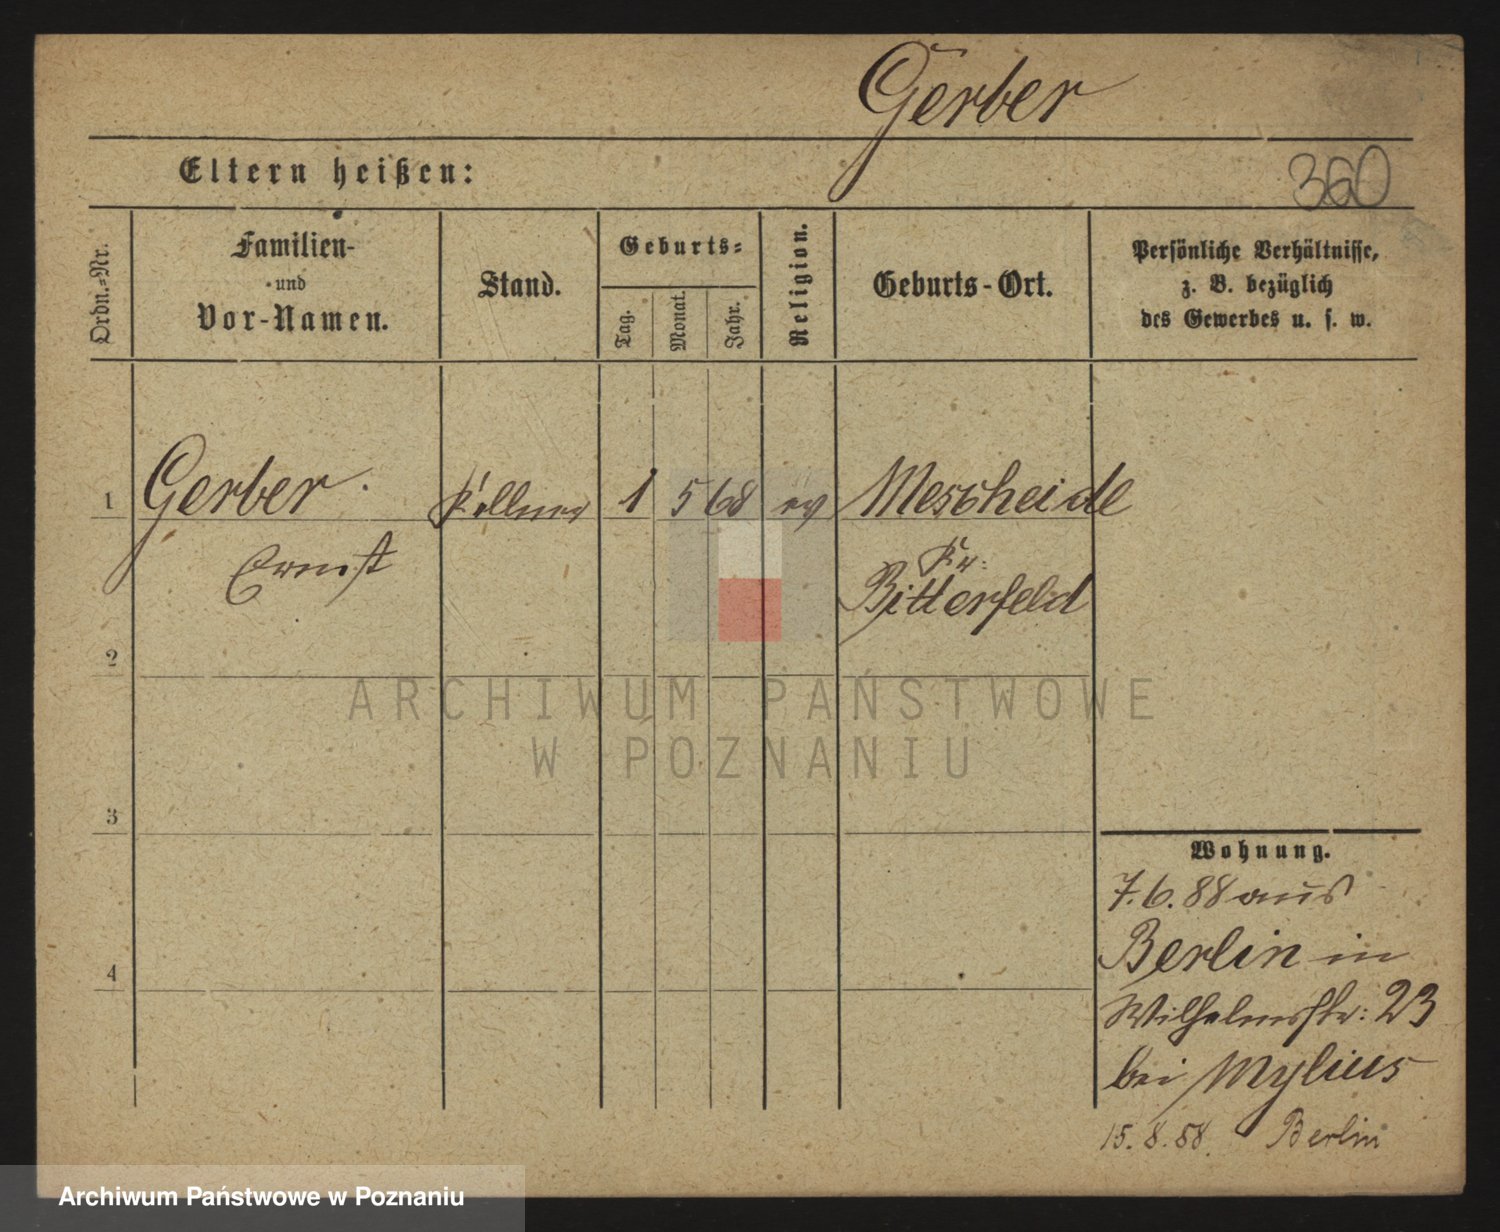 Gerber
Eltern heißen:
360
Ordn.-Nr.
Familien-
und
Vor-Namen.
Stand.
Geburts-
Tag.
Monat.
Jahr.
Religion.
Geburts-Ort.
Persönliche Verhältnisse,
z. B. bezüglich
des Gewerbes u. s. w.
1 Gerber. Kellner 1 5 68 ev Mescheide
Ernst
Kr:
Bitterfeld
2
ARCHIWUM PAŃSTWOWE
W POZNANIU
3
4
Wohnung.
7.6.88 aus
Berlin in
Wilhelmstr: 23
bei Mylius
15.8.88. Berlin
Archiwum Państwowe w Poznaniu